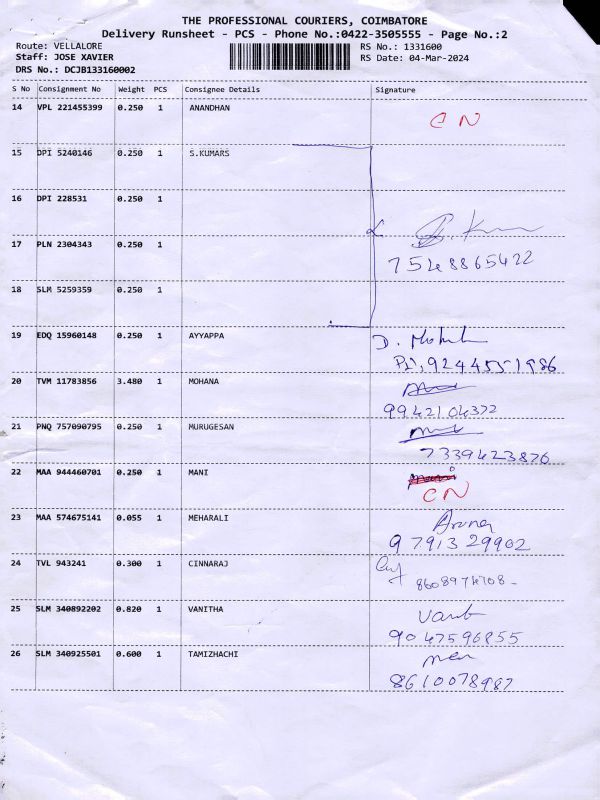 THE PROFESSIONAL COURIERS, COIMBATORE
Delivery Runsheet - PCS - Phone No.:0422-3505555 - Page No.:2
Route: VELLALORE RS No.: 1331600
Staff: JOSE XAVIER RS Date: 04-Mar-2024
DRS No.: DCJB133160002
S No Consignment No Weight PCS Consignee Details Signature
14 VPL 221455399 0.250 1 ANANDHAN
CN
15 DPI 5240146 0.250 1 S.KUMARS
16 DPI 228531 0.250 1
S. Kum
17 PLN 2304343 0.250 1
7548865422
18 SLM 5259359 0.250 1
19 EDQ 15960148 0.250 1 AYYAPPA D.
9244551986
20 TVM 11783856 3.480 1 MOHANA
9942104372
21 PNQ 757090795 0.250 1 MURUGESAN
7339423876
22 MAA 944460701 0.250 1 MANI
CN
23 MAA 574675141 0.055 1 MEHARALI Aruna
9791329902
24 TVL 943241 0.300 1 CINNARAJ
8608974708
25 SLM 340892202 0.820 1 VANITHA
9047596855
26 SLM 340925501 0.600 1 TAMIZHACHI
8610078987